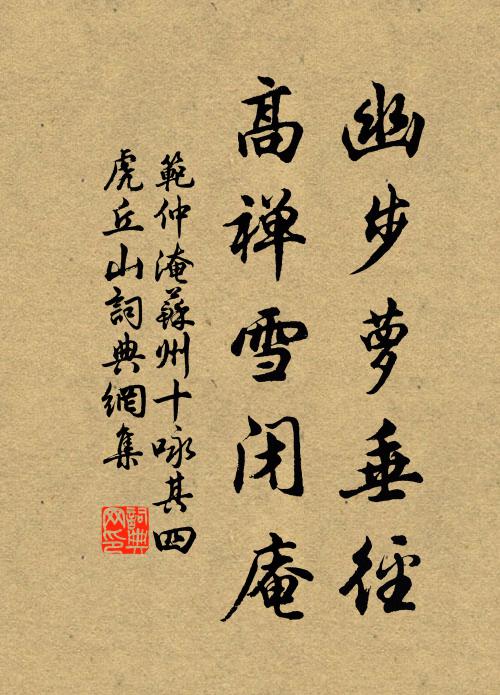 幽步萝垂径
高禅雪闭庵
範仲淹蘇州十咏其四
虎丘山詞典網集
詞典
网印